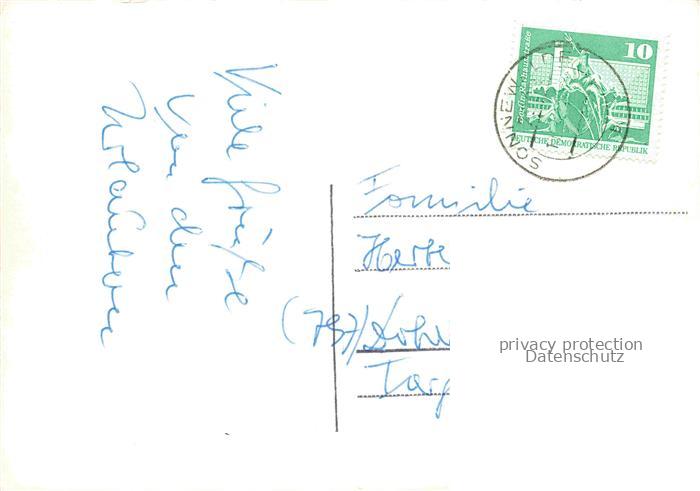 Viele Grüße
von den
Urlaubern
10
Berlin, Rathausstraße
DEUTSCHE DEMOKRATISCHE REPUBLIK
SONNEW
Familie
Herbe
(757)
privacy protection
Datenschutz